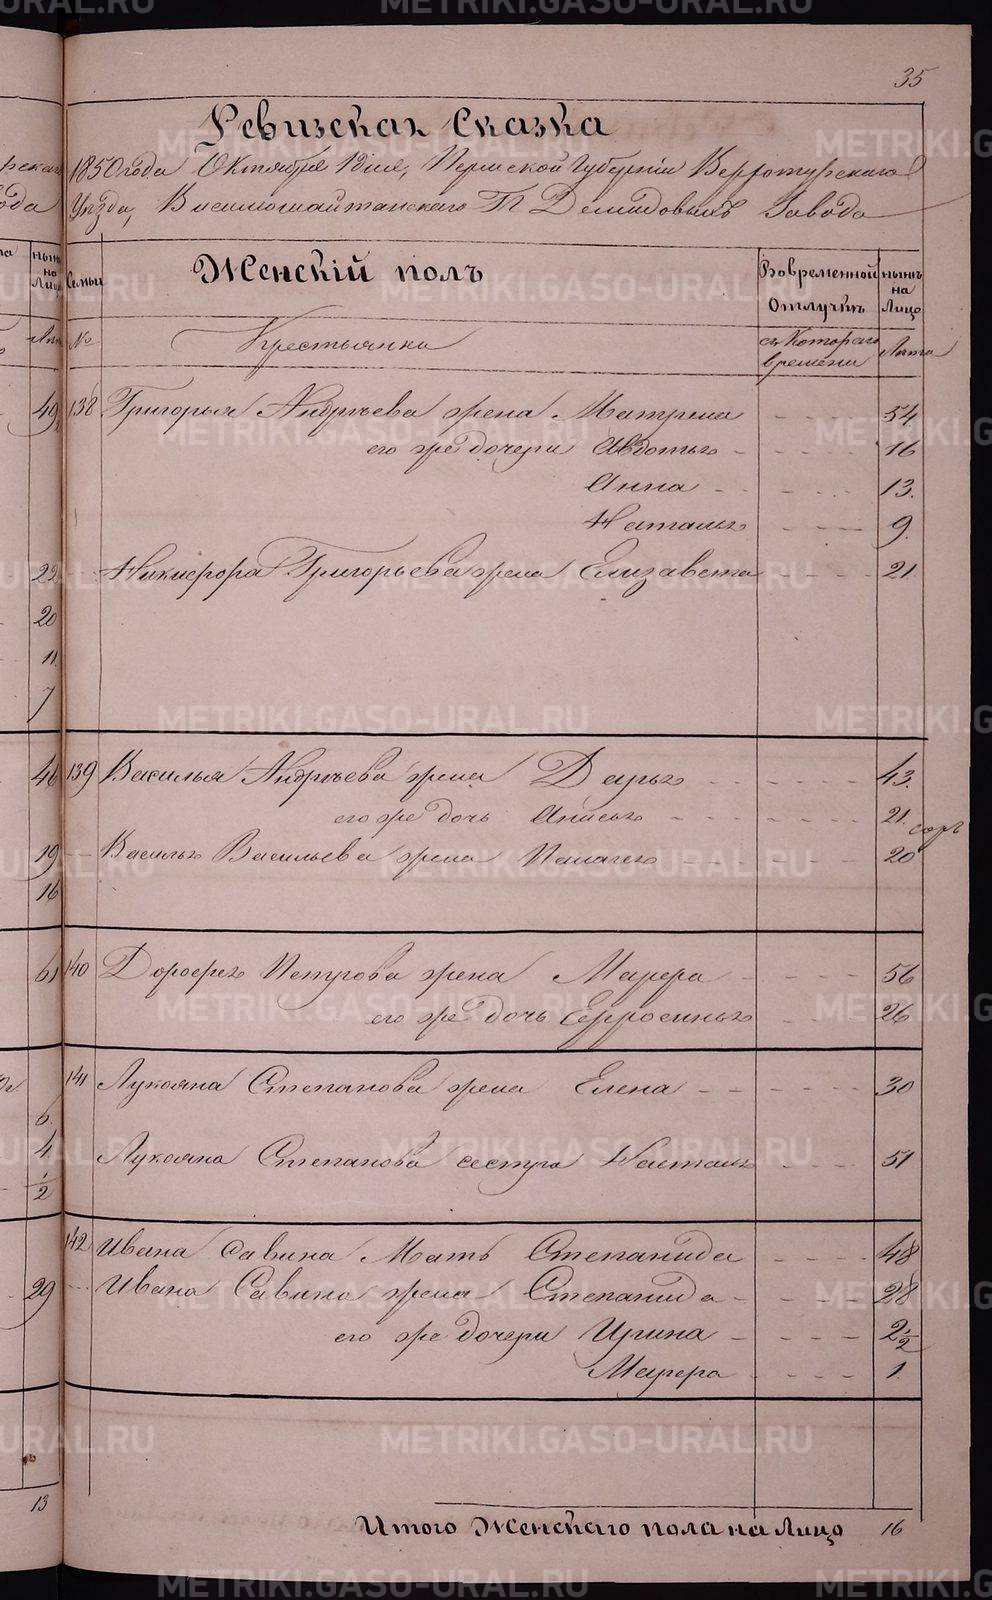 35
Ревизская Сказка
1850 года Октября 12 дня, Пермской Губернии Верхотурскаго
Уѣзда, Висимошайтанскаго Гг Демидовыхъ Завода
Семьи
Женскій полъ
Вовременной Отлучкѣ
нынѣ на Лицо
№
Крестьянка
съ Котораго времени
Лѣта
138 Григорья Андрѣева жена Матрена 54
его же дочери Авдотья 16
Анна 13.
Наталья 9.
Никифора Григорьева жена Елизавета 21
139 Василья Андрѣева жена Дарья 43.
его же дочь Анисья 21.
Василья Васильева жена Пелагея 20
140 Дорофея Петрова жена Марфа 56
его же дочь Ефросинья 26
141 Лукояна Степанова жена Елена 30
Лукояна Степанова сестра Наталья 51
142 Ивана Савина Мать Степанида 48
Ивана Савина жена Степанида 28
его же дочери Ирина 2 1/2
Марфа 1
Итого Женскаго пола на Лицо 16
нынѣ на Лицо
49
22
20
11
7
46
19
16
61
6
4
1/2
29
13
METRIKI.GASO-URAL.RU